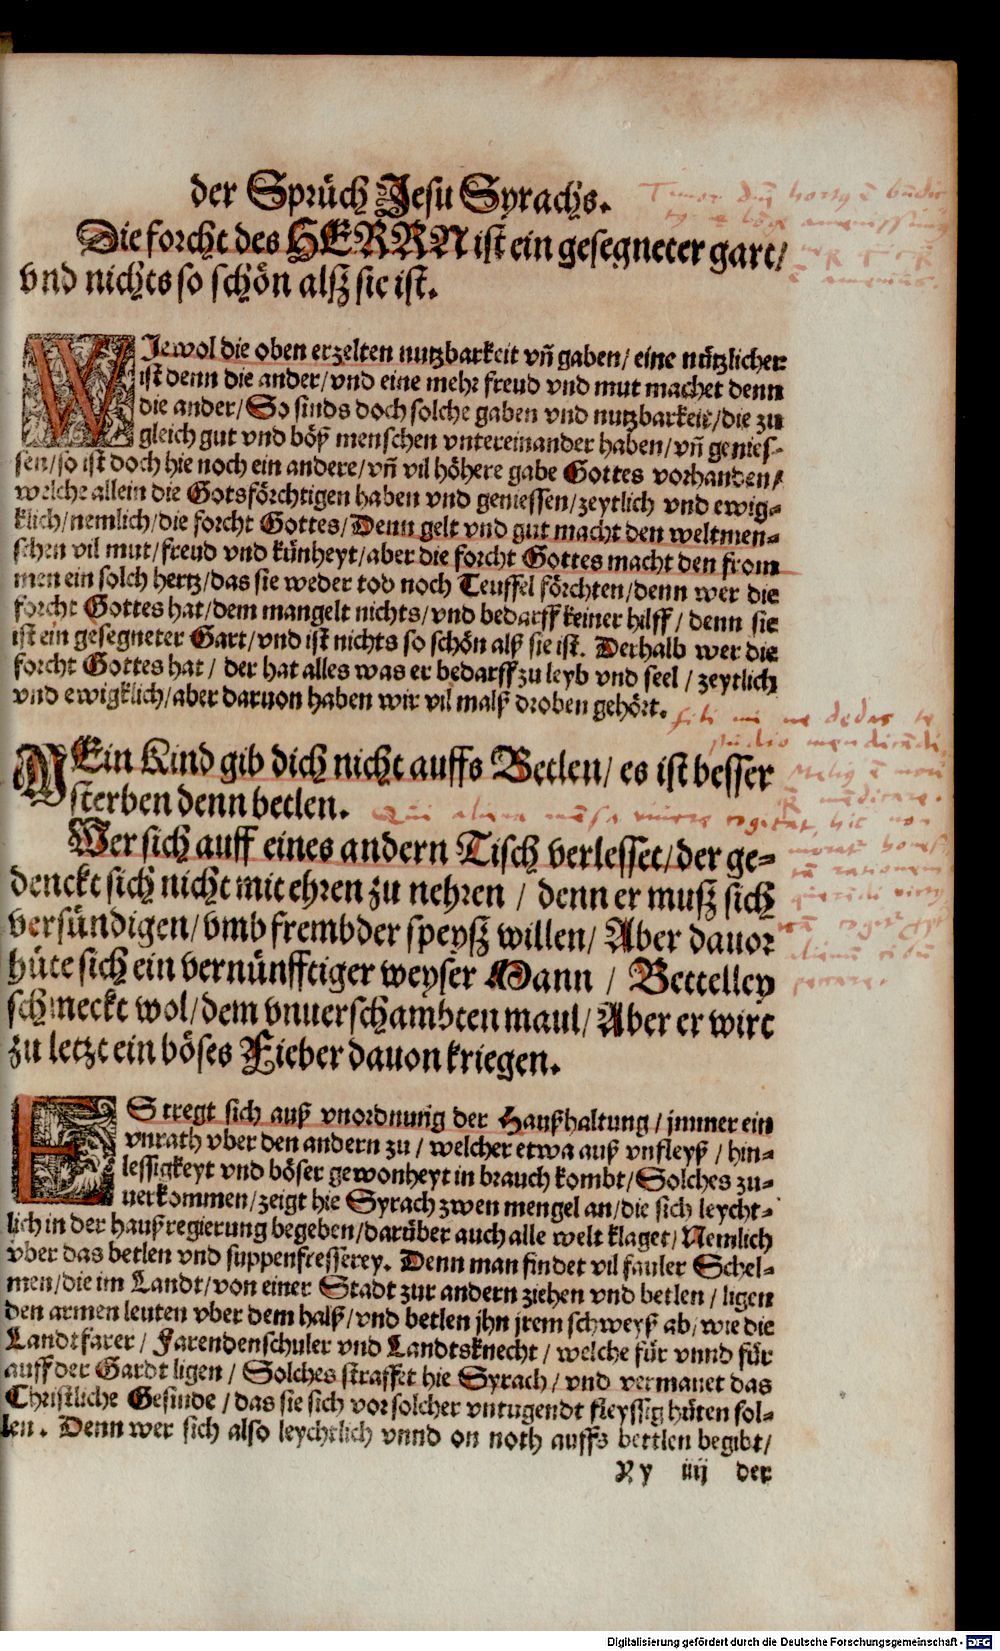 der Sprüch Jesu Syrachs.
Die forcht des HERRN ist ein gesegneter gart/
vnd nichts so schön alsz sie ist.
WJewol die oben erzelten nutzbarkeit vñ gaben/ eine nützlicher
ist denn die ander/ vnd eine mehr freud vnd mut machet denn
die ander/ So sinds doch solche gaben vnd nutzbarkeit/ die zu
gleich gut vnd böß menschen vntereinander haben/ vñ genies-
sen/ so ist doch hie noch ein andere/ vñ vil höhere gabe Gottes vorhanden/
welche allein die Gotsförchtigen haben vnd geniessen/ zeytlich vnd ewig-
klich/ nemlich/ die forcht Gottes/ Denn gelt vnd gut macht den weltmen-
schen vil mut/ freud vnd künheyt/ aber die forcht Gottes macht den from
men ein solch hertz/ das sie weder tod noch Teuffel förchten/ denn wer die
forcht Gottes hat/ dem mangelt nichts/ vnd bedarff keiner hilff/ denn sie
ist ein gesegneter Gart/ vnd ist nichts so schön alß sie ist. Derhalb wer die
forcht Gottes hat/ der hat alles was er bedarff zu leyb vnd seel/ zeytlich
vnd ewigklich/ aber daruon haben wir vil malß droben gehört.
MEin Kind gib dich nicht auffs Betlen/ es ist besser
sterben denn betlen.
Wer sich auff eines andern Tisch verlesset/ der ge-
denckt sich nicht mit ehren zu nehren/ denn er musz sich
versündigen/ vmb frembder speysz willen/ Aber dauor
hüte sich ein vernünfftiger weyser Mann/ Bettelley
schmeckt wol/ dem vnuerschambten maul/ Aber er wirt
zu letzt ein böses Fieber dauon kriegen.
ES tregt sich auß vnordnung der Haußhaltung/ jmmer ein
vnrath vber den andern zu/ welcher etwa auß vnfleyß/ hin-
lessigkeyt vnd böser gewonheyt in brauch kombt/ Solches zu-
uerkommen/ zeigt hie Syrach zwen mengel an/ die sich leycht-
lich in der haußregierung begeben/ darüber auch alle welt klaget/ Nemlich
vber das betlen vnd suppenfresserey. Denn man findet vil fauler Schel-
men/ die im Landt/ von einer Stadt zur andern ziehen vnd betlen/ ligen
den armen leuten vber dem halß/ vnd betlen jhn jrem schweyß ab/ wie die
Landtfarer/ Farendenschuler vnd Landtsknecht/ welche für vnnd für
auff der Gardt ligen/ Solches straffet hie Syrach/ vnd vermanet das
Christliche Gesinde/ das sie sich vor solcher vntugendt fleyssig hüten sol-
len. Denn wer sich also leychtlich vnnd on noth auffs bettlen begibt/
Yy iiij der
fili mi ne dedas te
Qui aliena mensa vivere cogitat, hic non
peccare.
Digitalisierung gefördert durch die Deutsche Forschungsgemeinschaft - DFG